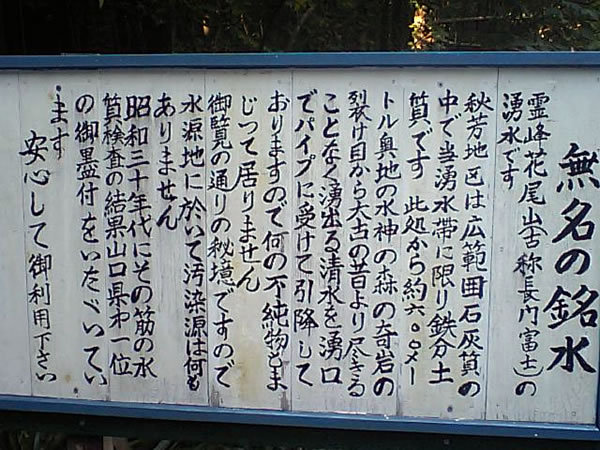 無名の銘水
霊峰花尾山(古称長門富士)の
湧水です
秋芳地区は広範囲石灰質の
中で当湧水帯に限り鉄分土
質です 此処から約六〇〇メー
トル奥地の水神の森の奇岩の
裂け目から太古の昔より尽きる
ことなく湧出る清水を湧口
でパイプに受けて引降して
おりますので何の不純物もま
じって居りません
御覧の通りの秘境ですので
水源地に於いて汚染源は何も
ありません
昭和三十年代にその筋の水
質検査の結果山口県才一位
の御墨付をいたゞいてい
ます
安心して御利用下さい